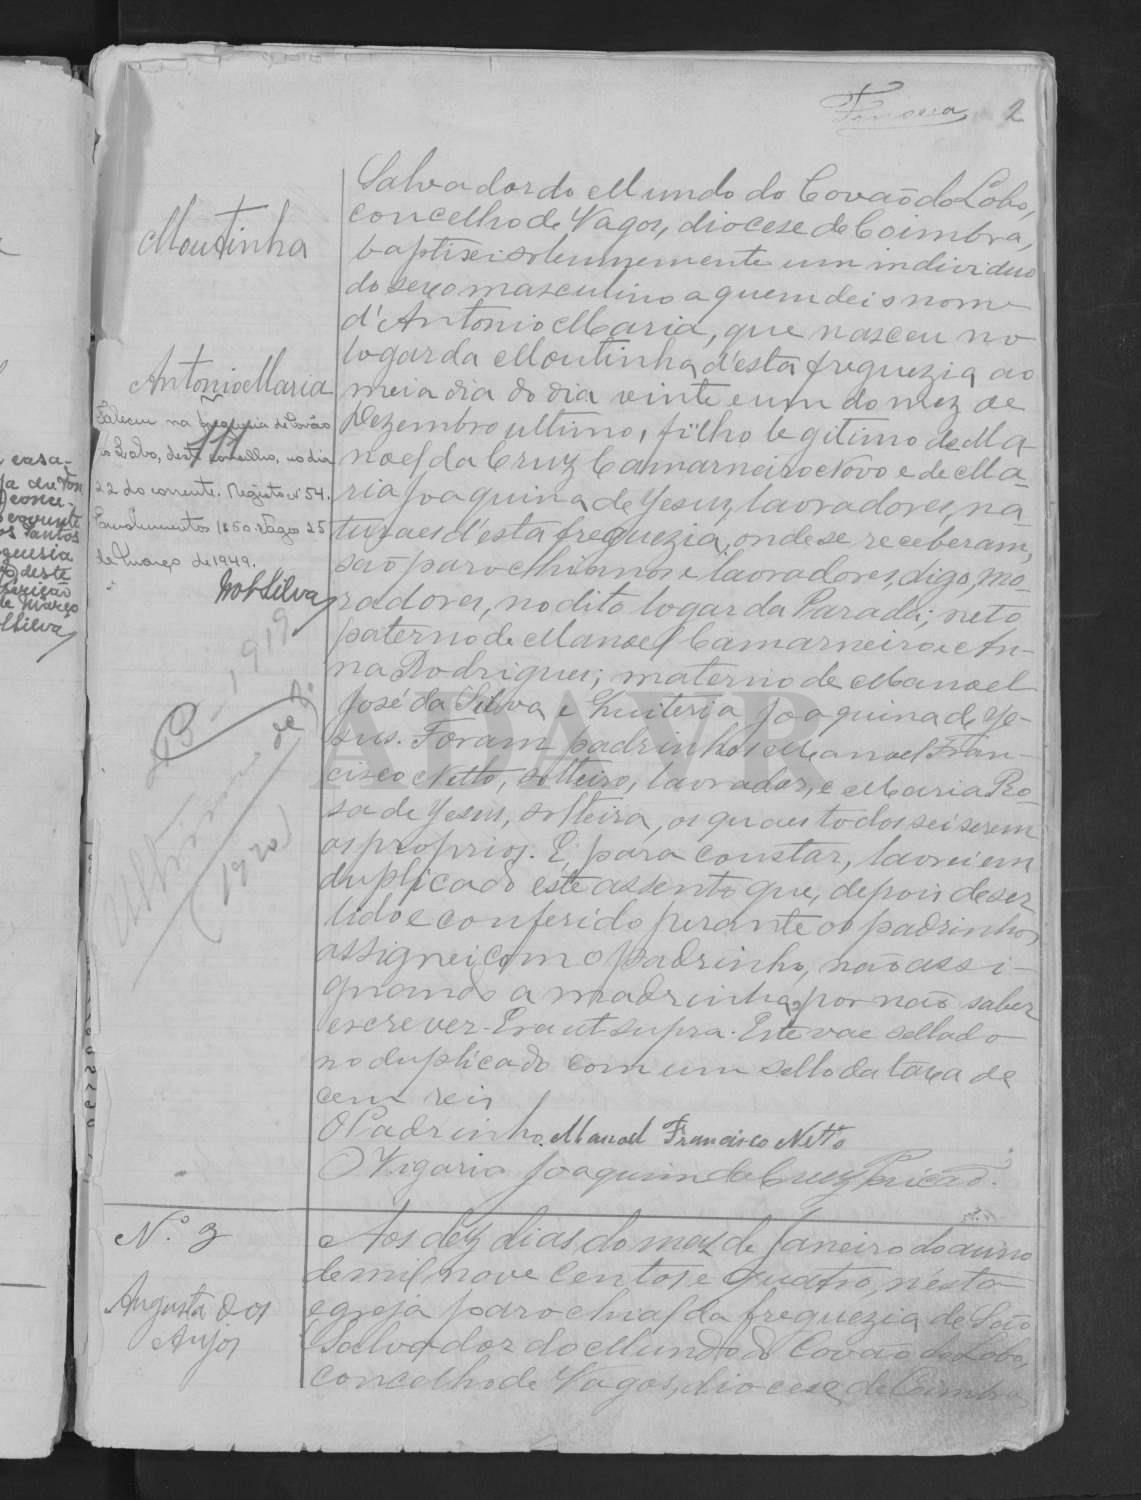 2
Moutinha
Antonio Maria
Faleceu na freguesia de Covão
do Lobo, deste concelho, no dia
22 do corrente. Registo nº 54.
Emolumentos 1$50. Vagos 25
de Março de 1949.
Salvador do Mundo do Covão do Lobo,
concelho de Vagos, diocese de Coimbra,
baptisei solemnemente um individuo
do sexo masculino a quem dei o nome
d'Antonio Maria, que nasceu no
logar da Moutinha d'esta freguezia ao
meia dia do dia vinte e um do mez de
Dezembro ultimo, filho legitimo de Ma-
noel da Cruz Camarneiro Novo e de Ma-
ria Joaquina de Jesus, lavradores, na-
turaes d'esta freguezia, onde se receberam,
são parochianos e lavradores, digo, mo-
radores, no dito logar da Parada; neto
paterno de Manoel Camarneiro e An-
na Rodrigues; materno de Manoel
José da Silva e Quiteria Joaquina de Je-
sus. Foram padrinhos Manoel Fran-
cisco Netto, solteiro, lavrador, e Maria Ro-
sa de Jesus, solteira, os quaes todos sei serem
os proprios. E, para constar, lavrei em
duplicado este assento que, depois de ser
lido e conferido perante os padrinhos
assignei com o padrinho, não assi-
gnando a madrinha por não saber
escrever. Era ut supra. Este vae sellado
no duplicado com um sello da taxa de
cem reis
O Padrinho, Manoel Francisco Netto
O Vigario Joaquim da Cruz
N.º 3
Augusta dos
Anjos
Aos dez dias do mez de Janeiro do anno
de mil nove centos e quatro, n'esta
egreja parochial da freguezia de São
Salvador do Mundo do Covão do Lobo,
concelho de Vagos, diocese de Coimbra
(1920)
ADAVR